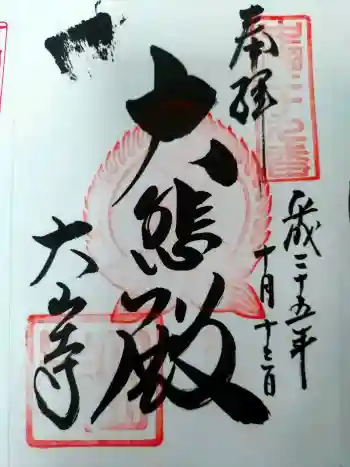 奉拝
平成二十五年
十月十二日
大悲殿
大山寺